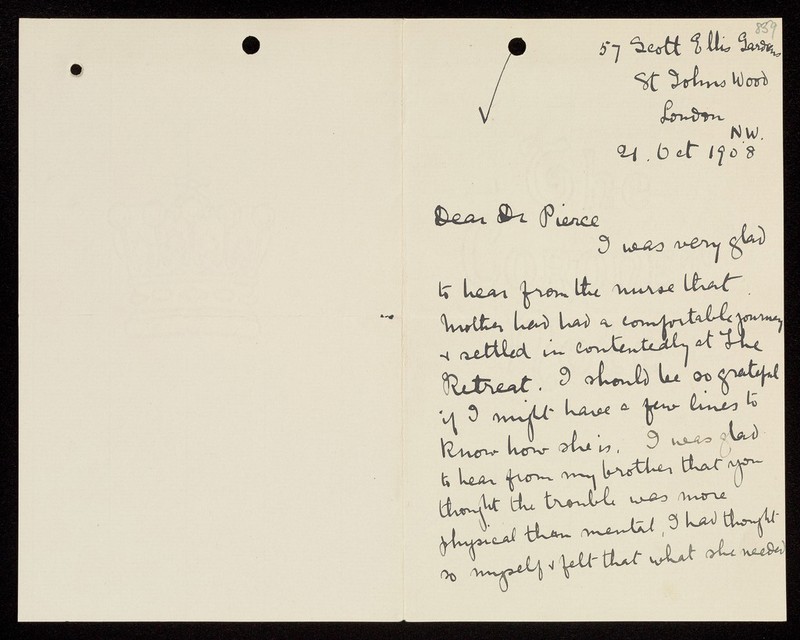 859
57 Scott Ellis Gardens
St Johns Wood
London
N.W.
21. Oct 1908
Dear Dr Pierce
I was very glad
to hear from the nurse that
Mother had had a comfortable journey
& settled in contentedly at The
Retreat. I should be so grateful
if I might have a few lines to
know how she is. I was glad
to hear from my brother that you
thought the trouble was more
physical than mental, I had thought
so myself & felt that what she needed